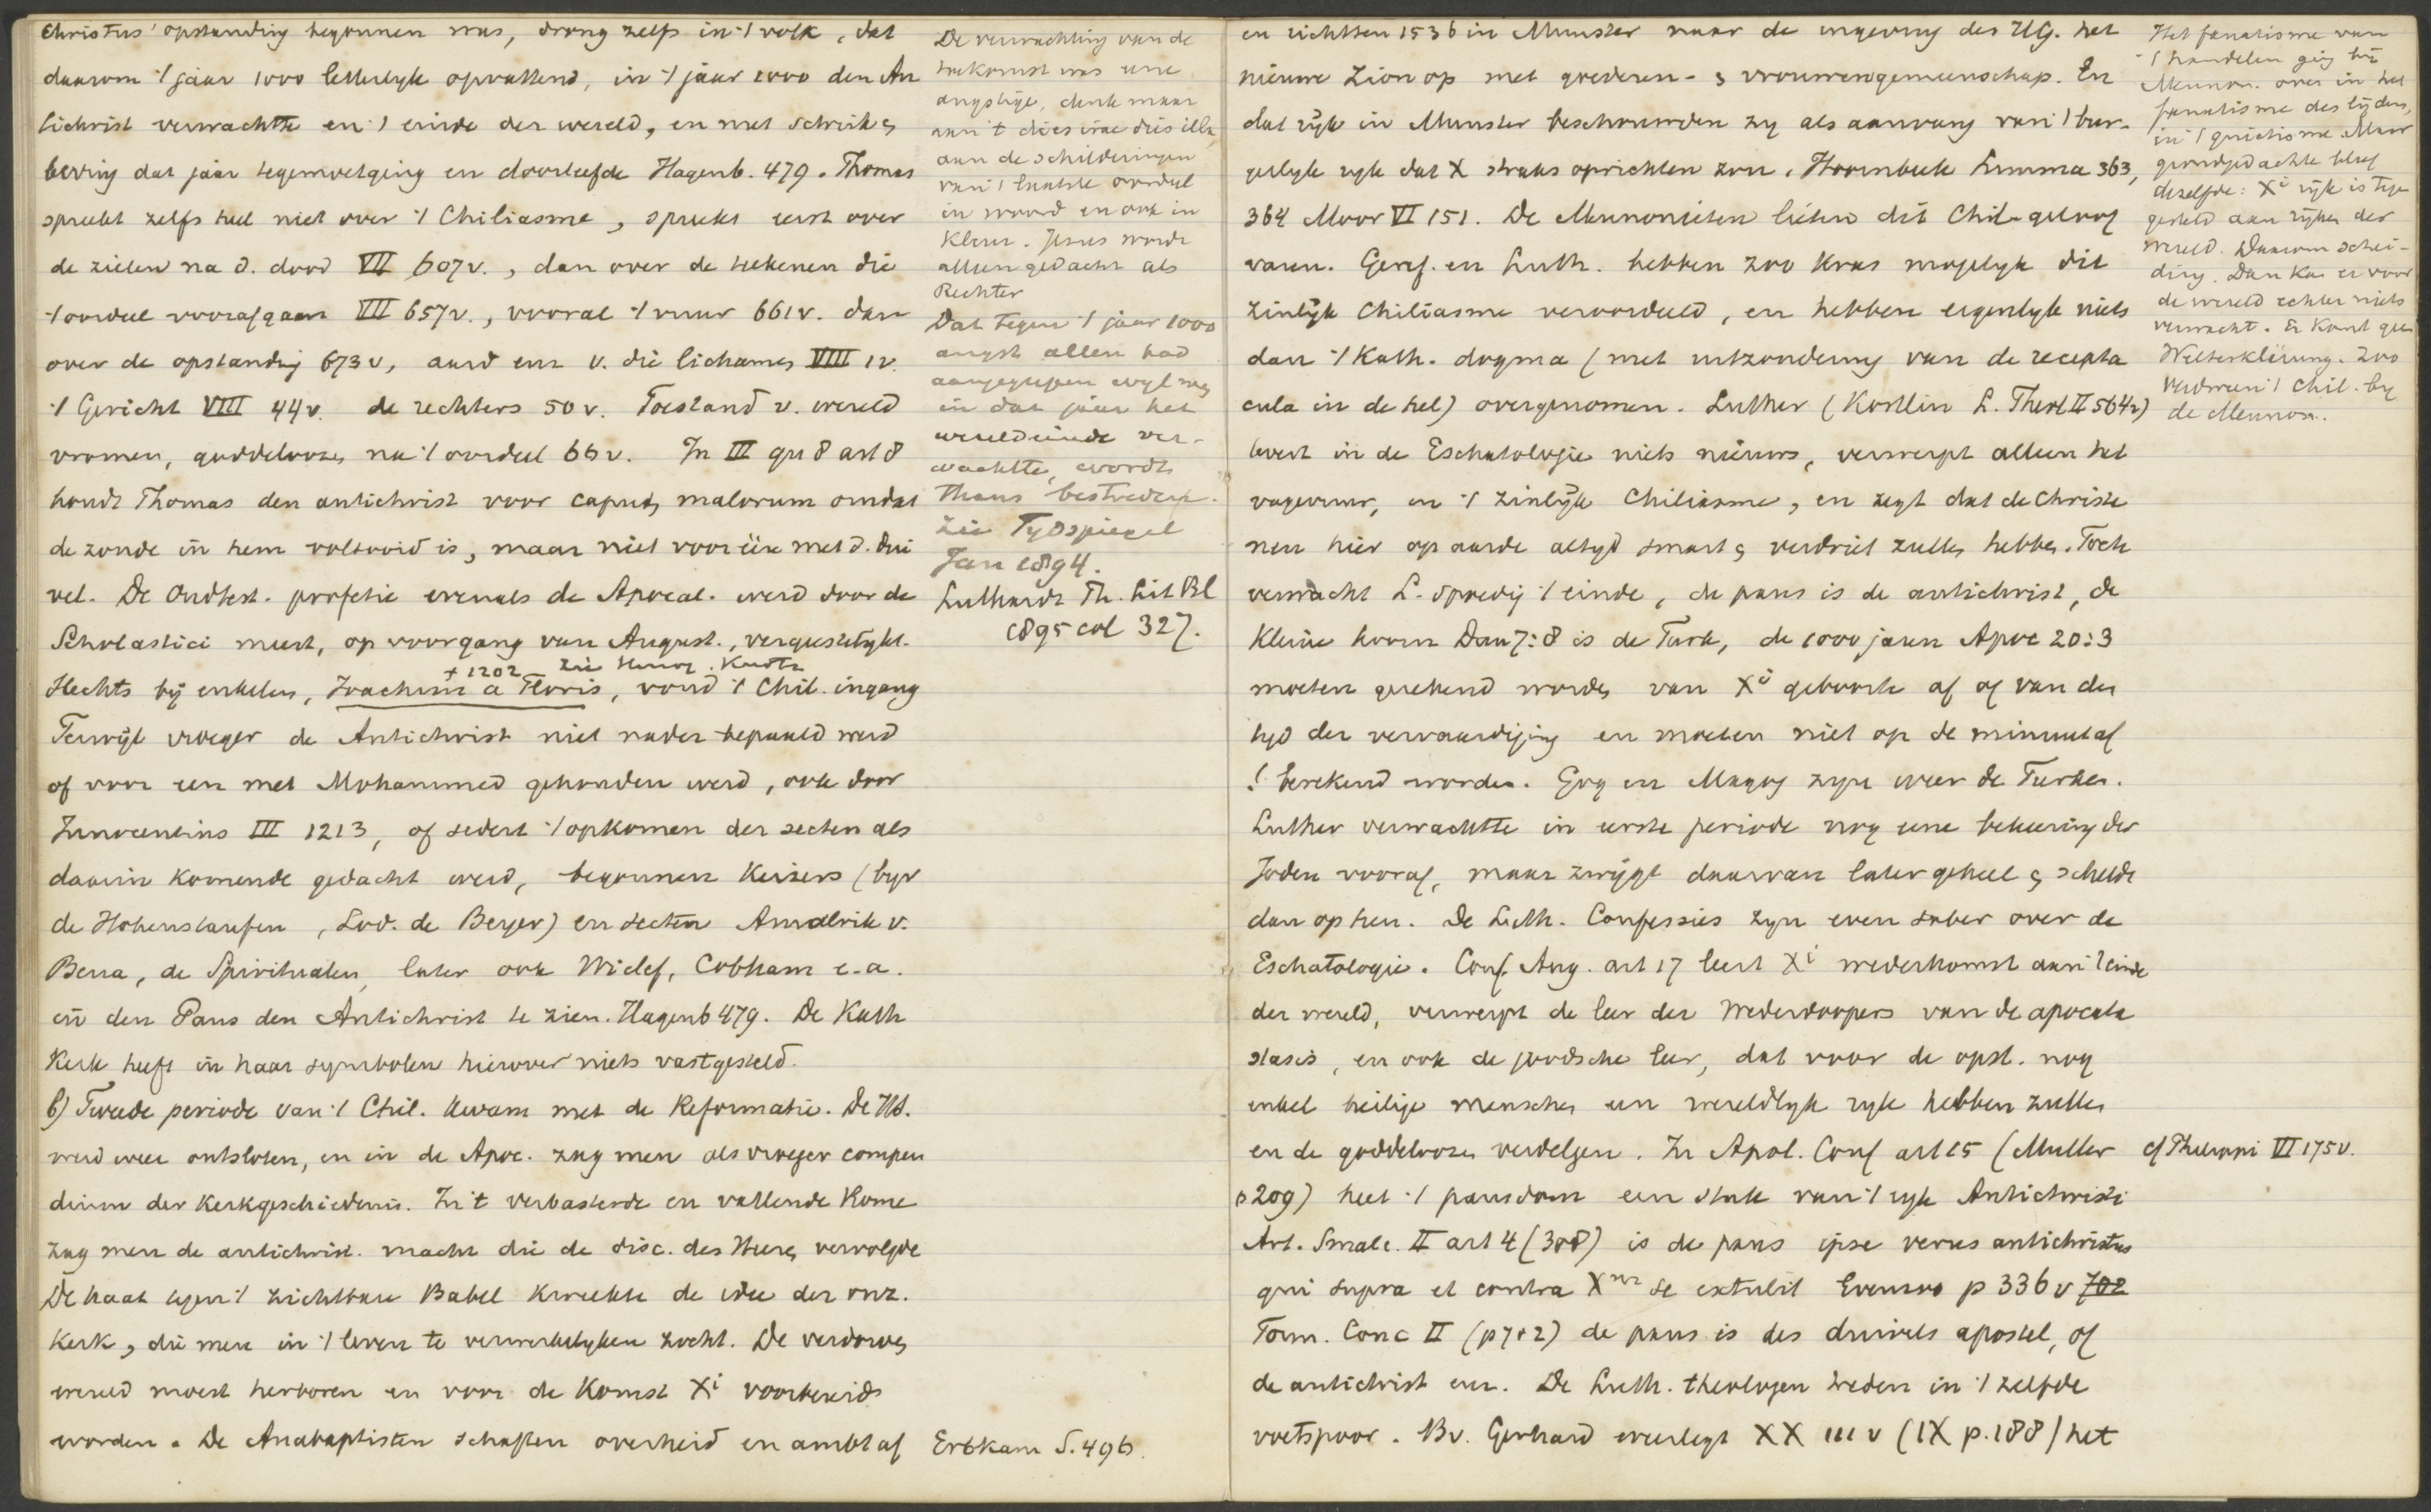 Christus' opstanding begonnen was, drong zelfs in 't volk, dat
daarom 't jaar 1000 letterlyk opvattend, in 't jaar 1000 den An
tichrist verwachtte en 't einde der wereld, en met schrik &
beving dat jaar tegemoetging en doorleefde Hagenb. 479. Thomas
spreekt zelfs heel niet over 't Chiliasme, spreekt eerst over
de zielen na d. dood VII 607v., dan over de teekenen die
't oordeel voorafgaan VII 657v., vooral 't vuur 661v. dan
over de opstanding 673v, aard enz v. die lichamen VIII 1v.
't Gericht VIII 44v. de rechters 50v. Toestand v. wereld
vromen, goddeloozen na 't oordeel 66v. In III qu 8 art 8
houdt Thomas den antichrist voor caput malorum omdat
de zonde in hem voltooid is, maar niet voor één met d. dui
vel. De Oudtest. profetie evenals de Apocal. werd door de
Scholastici meest, op voorgang van August., vergeestelykt.
† 1202 zie Herzog. Kurtz
Slechts bij enkelen, Joachim a Floris, vond 't Chil. ingang
Terwijl vroeger de Antichrist niet nader bepaald werd
of voor een met Mohammed gehouden werd, ook door
Innocentius III 1213, of sedert 't opkomen der secten als
daarin komende gedacht werd, begonnen Keizers (byv
de Hohenstaufen, Lod. de Beyer) en secten Amalrik v.
Bena, de Spiritualen, later ook Wiclef, Cobham e.a.
in den Paus den Antichrist te zien. Hagenb 479. De Kath
Kerk heeft in haar symbolen hierover niets vastgesteld.
b) Tweede periode van 't Chil. kwam met de Reformatie. De HS.
werd weer ontsloten, en in de Apoc. zag men als vroeger compen
dium der Kerkgeschiedenis. In 't verbasterde en vallende Rome
zag men de antichrist. macht die de disc. des Heeren vervolgde
De haat tegen 't zichtbare Babel kweekte de idee der onz.
Kerk, die men in 't leven te verwerkelyken zocht. De verdorven
wereld moest herboren en voor de Komst Xi voorbereid
worden. De Anabaptisten schaften overheid en ambt af
De verwachting van de
toekomst was eene
angstige, denk maar
aan 't dies irae dies illa,
aan de schilderingen
van 't laatste oordeel
in woord en ook in
kleur. Jezus wordt
alleen gedacht als
Rechter
Dat tegen 't jaar 1000
angst allen had
aangegrepen wyl men
in dat jaar het
wereldeinde ver-
wachtte, wordt
thans bestreden.
Zie Tydspiegel
Jan 1894.
Luthardt Th. Lit Bl
1895 col 327.
Erbkam S. 496.
en richtten 1536 in Munster naar de ingeving des HG. het
nieuwe Zion op met goederen- & vrouwengemeenschap. En
dat ryk in Munster beschouwden zy als aanvang van 't bur-
gerlyk ryk dat X straks oprichten zou. Hoornbeek Summa 363,
364 Moor VI 151. De Mennonieten lieten dit Chil-geloof
varen. Geref. en Luth. hebben zoo kras mogelyk dit
zinlijk Chiliasme veroordeeld, en hebben eigenlyk niets
dan 't Kath. dogma (met uitzondering van de recepta
cula in de hel) overgenomen. Luther (Kostlin L. Theol II 564v)
levert in de Eschatologie niets nieuws, verwerpt alleen het
vagevuur, en 't zinlijk Chiliasme, en zegt dat de Christe
nen hier op aarde altyd smart & verdriet zullen hebben. Toch
verwacht L. spoedig 't einde, de paus is de antichrist, de
kleine hoorn Dan 7:8 is de Turk, de 1000 jaren Apoc 20:3
moeten gerekend worden van Xi geboorte af of van den
tyd der vervaardiging en moeten niet op de minuut af
! berekend worden. Gog en Magog zyn weer de Turken.
Luther verwachtte in eerste periode nog eene bekeering der
Joden vooraf, maar zwijgt daarvan later geheel & scheldt
dan op hen. De Luth. Confessies zyn even sober over de
Eschatologie. Conf. Aug. art 17 leert Xi wederkomst aan 't einde
der wereld, verwerpt de leer der Wederdoopers van de apocata
stasis, en ook de joodsche leer, dat voor de opst. nog
enkel heilige menschen een wereldlyk ryk hebben zullen
en de goddeloozen verdelgen. In Apol. Conf art 15 (Muller
p 209) heet 't pausdom een stuk van 't ryk Antichristi
Art. Smalc. II art 4 (308) is de paus ipse verus antichristus
qui supra et contra Xum se extulit Evenzoo p 336 v 702
Form. Conc II (p 702) de paus is des duivels apostel, of
de antichrist enz. De Luth. theologen treden in 't zelfde
voetspoor. Bv. Gerhard weerlegt XX 111 v (IX p. 188) het
Het fanatisme van
't handelen ging bij
Mennon. over in het
fanatisme des lijdens,
in 't quietisme. Maar
grondgedachte bleef
dezelfde: Xi rijk is tege
gesteld aan rijken der
wereld. Daarom schei-
ding. Dan kan er voor
de wereld echter niets
verwacht. Er komt geen
Weltverklärung. Zoo
verdween 't Chil. by
de Mennon.
cf Philippi VI 175v.